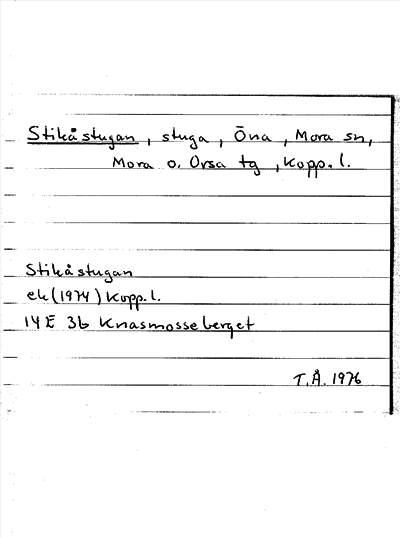 Stikåstugan, stuga, Öna, Mora sn,
Mora o. Orsa tg, Kopp. l.
Stikåstugan
ek (1974) Kopp. l.
14 E 3b Knasmosseberget
T.Å. 1976